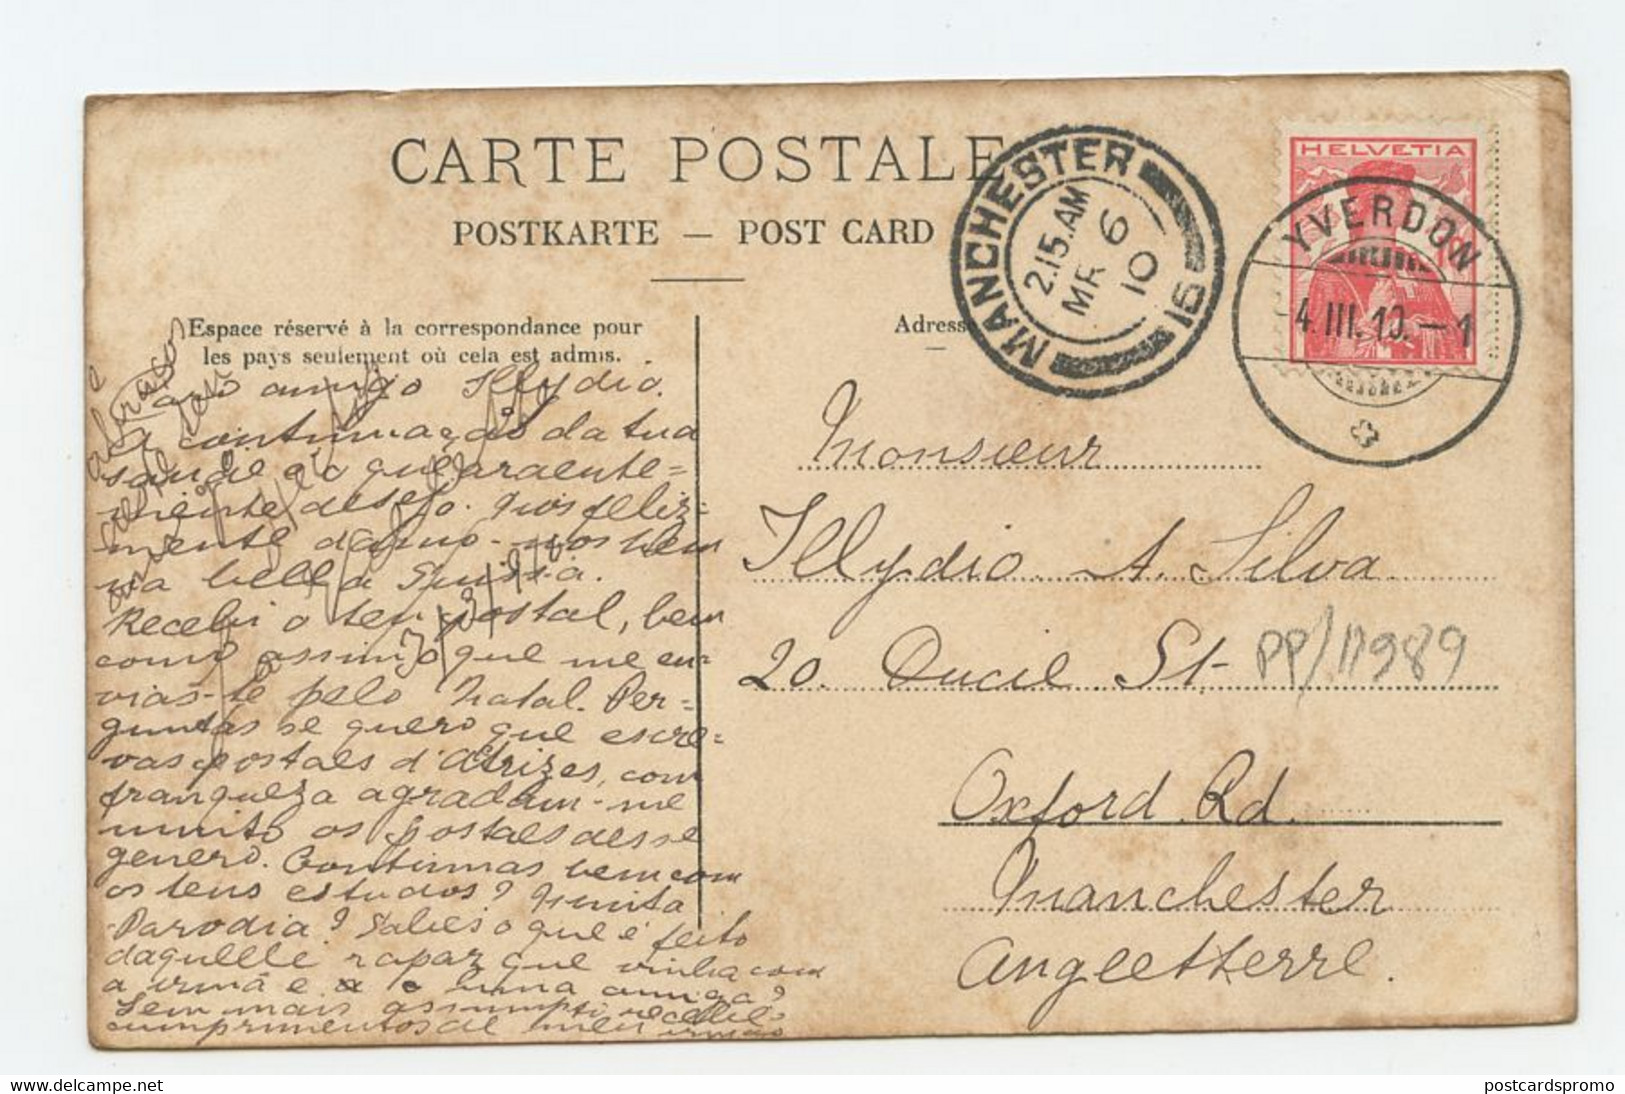 CARTE POSTALE
POSTKARTE — POST CARD
Espace réservé à la correspondance pour
les pays seulement où cela est admis.
Adresse
MANCHESTER
2.15.AM
MR 6
10
16
HELVETIA
YVERDON
4.III.10.–1
amigo Illydio.
A continuação da tua
saude é o que ardente=
mente desejo. Nós feliz=
mente damo-nos bem
na bella Suissa.
Recebi o teu postal, bem
como assim o que me en=
vias-te pelo Natal. Per=
guntas se quero que escre=
vas postaes d'atrizes, com
franqueza agradam-me
muito os postaes desse
genero. Continuas bem com
os teus estudos? Muita
Parodia? Sabes o que é feito
daquelle rapaz que vinha com
a irmã e a uma amiga?
Sem mais assumpto recebe
cumprimentos de meu irmão
e
abraços
3/3/910
Monsieur
Illydio A. Silva
20. Ducie St-
PP/11989
Oxford Rd.
Manchester
Angletterre.
delcampe.net
postcardspromo